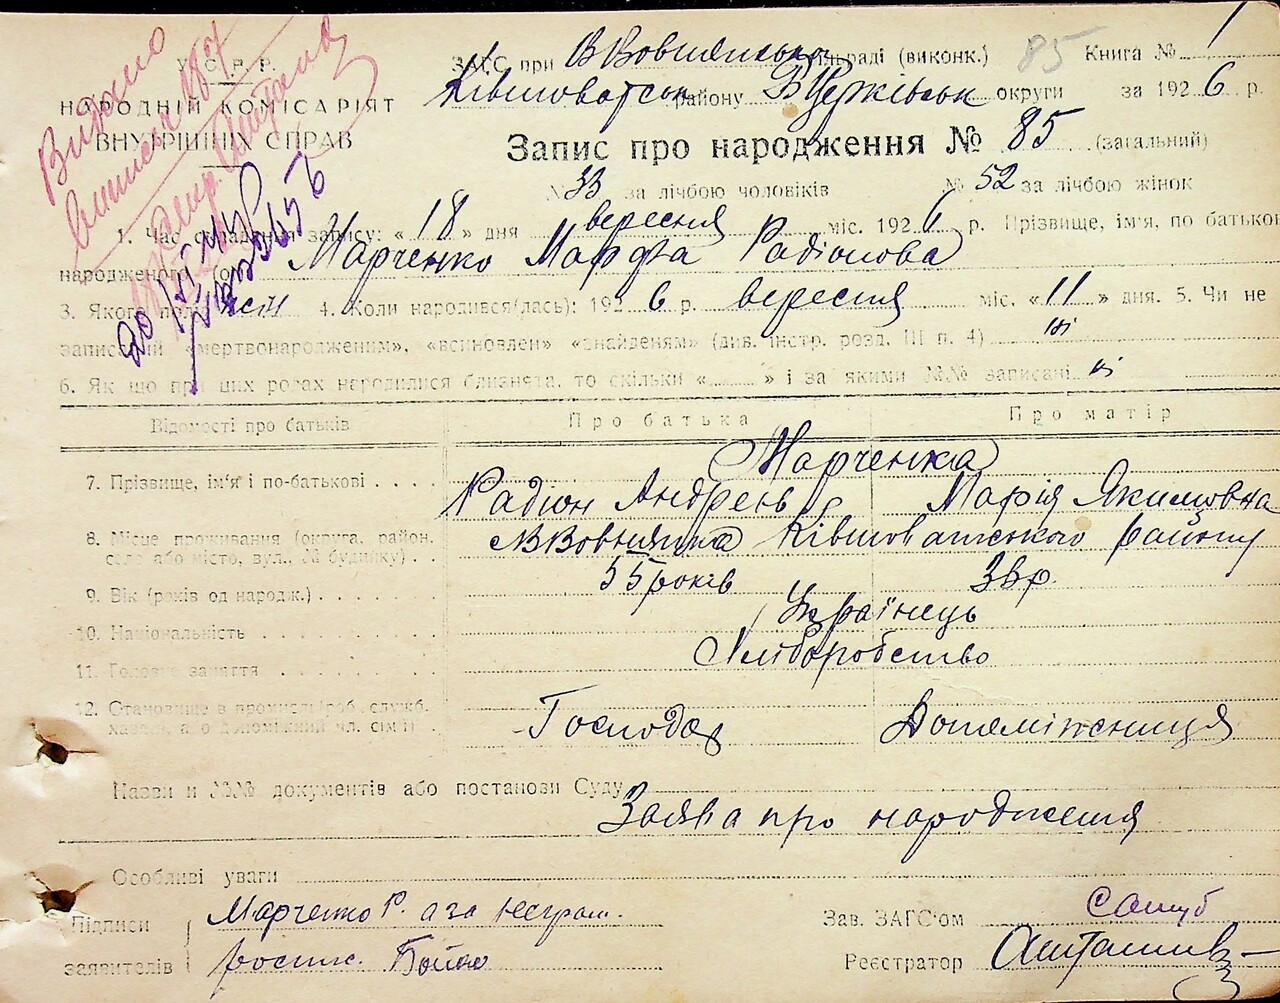 Видано
У.С.Р.Р.
НАРОДНІЙ КОМІСАРІЯТ
ВНУТРІШНІХ СПРАВ
ЗАГС при раді (виконк.) 85 Книга № 1
району Б Церківськ округи за 1926 р.
Запис про народження № 85 (загальний)
№ 33 за лічбою чоловіків № 52 за лічбою жінок
1. Час складання запису: «18» дня вересня міс. 1926 р. Прізвище, ім'я, по батькові
народженого Марченко Марфа Радіонова
3. Якого полу 4. Коли народився(лась): 1926 р. вересня міс. «11» дня. 5. Чи не
записаний «мертвонародженим», «всиновлен» «знайденям» (див. інстр. розд. III п. 4) ні
6. Як що при цих родах народилися близнята, то скільки « » і за якими №№ записані ні
Відомості про батьків Про батька Про матір
Марченка
7. Прізвище, ім'я і по-батькові Радіон Андреєв Марія Якимовна
8. Місце проживання (округа, район,
село або місто, вул., № будинку) Ківшоватського району
9. Вік (років од народж.) 55 років 38 р.
10. Національність Українець
11. Головне заняття Хліборобство
12. Становище в промислі
Господар Допоміжниця
Назви й №№ документів або постанови Суду
Заява про народження
Особливі уваги
Підписи Марченко Р. а за неграм.
заявителів роспис. Бойко
Зав. ЗАГС'ом
Реєстратор